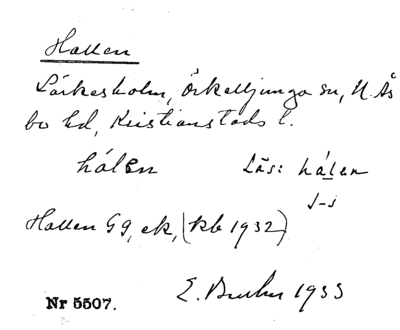 Hallen
Lärkesholm, Örkelljunga sn, N. Ås
bo hd, Kristianstads l.
hálen Läs: hálen
J-s
Hallen Gg, ek, (kb 1932)
E. Bruhn 1933
Nr 5507.